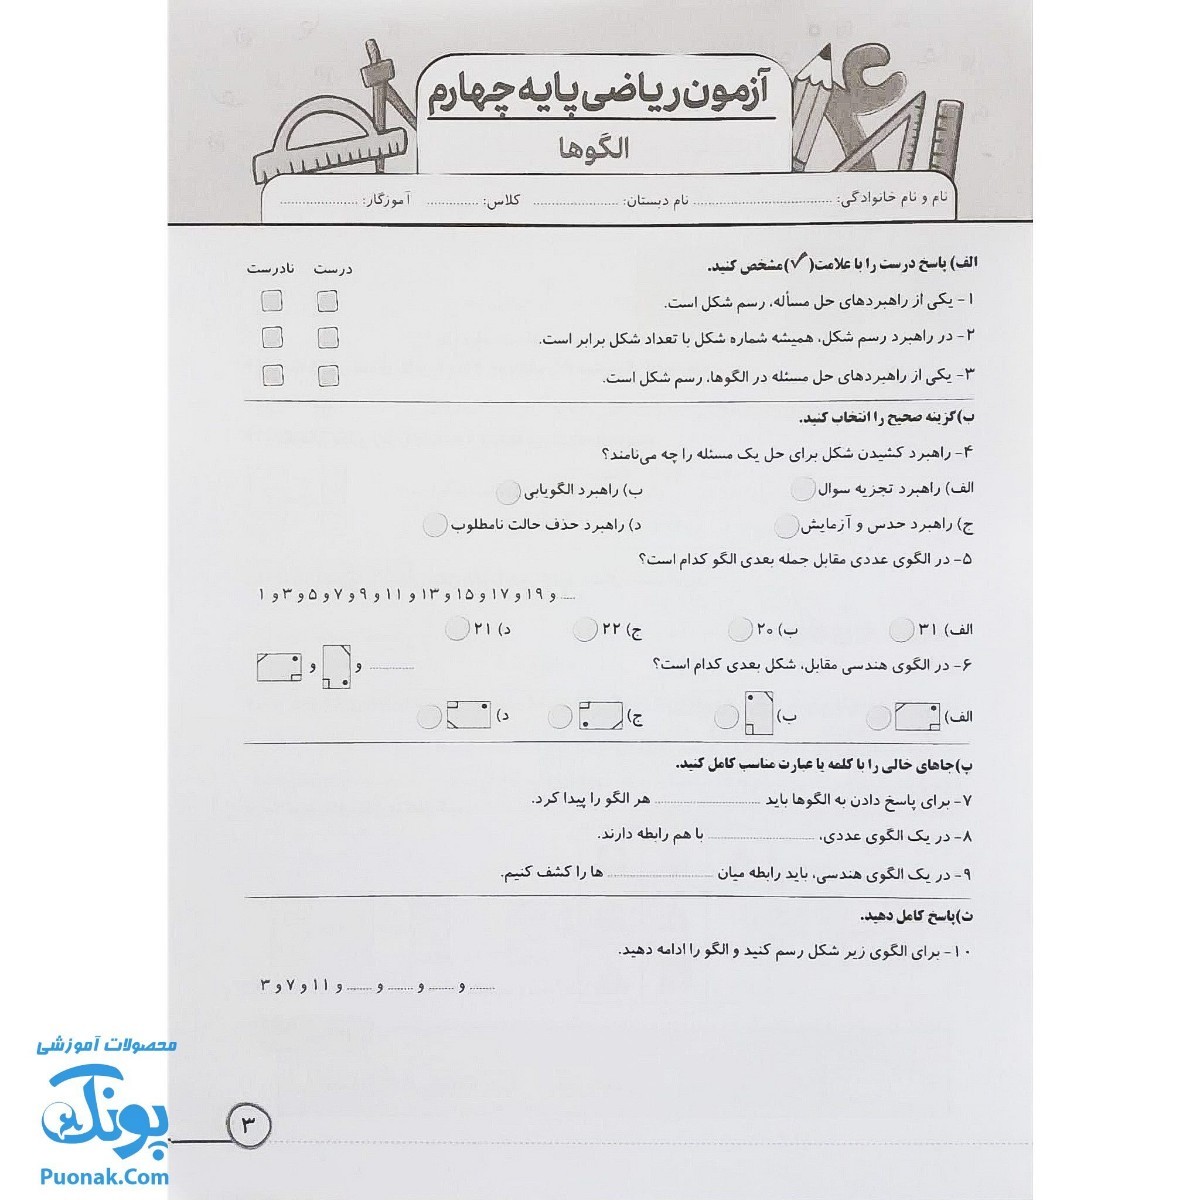 آزمون ریاضی پایه چهارم
الگوها
نام و نام خانوادگی: .................................... نام دبستان: ...................... کلاس: .............. آموزگار: ....................
الف) پاسخ درست را با علامت(✓)مشخص کنید. درست نادرست
۱- یکی از راهبردهای حل مسأله، رسم شکل است.
۲- در راهبرد رسم شکل، همیشه شماره شکل با تعداد شکل برابر است.
۳- یکی از راهبردهای حل مسئله در الگوها، رسم شکل است.
ب)گزینه صحیح را انتخاب کنید.
۴- راهبرد کشیدن شکل برای حل یک مسئله را چه می‌نامند؟
الف) راهبرد تجزیه سوال ب) راهبرد الگویابی
ج) راهبرد حدس و آزمایش د) راهبرد حذف حالت نامطلوب
۵- در الگوی عددی مقابل جمله بعدی الگو کدام است؟
..... و ۱۹ و ۱۷ و ۱۵ و ۱۳ و ۱۱ و ۹ و ۷ و ۵ و ۳ و ۱
الف) ۳۱ ب) ۲۰ ج) ۲۲ د) ۲۱
۶- در الگوی هندسی مقابل، شکل بعدی کدام است؟ ............ و و
الف) ب) ج) د)
پ)جاهای خالی را با کلمه یا عبارت مناسب کامل کنید.
۷- برای پاسخ دادن به الگوها باید ............................ هر الگو را پیدا کرد.
۸- در یک الگوی عددی، ............................ با هم رابطه دارند.
۹- در یک الگوی هندسی، باید رابطه میان ............................ ها را کشف کنیم.
ت)پاسخ کامل دهید.
۱۰- برای الگوی زیر شکل رسم کنید و الگو را ادامه دهید.
....... و ....... و ....... و ....... و ۱۱ و ۷ و ۳
محصولات آموزشی
پونک
Puonak.Com
۳